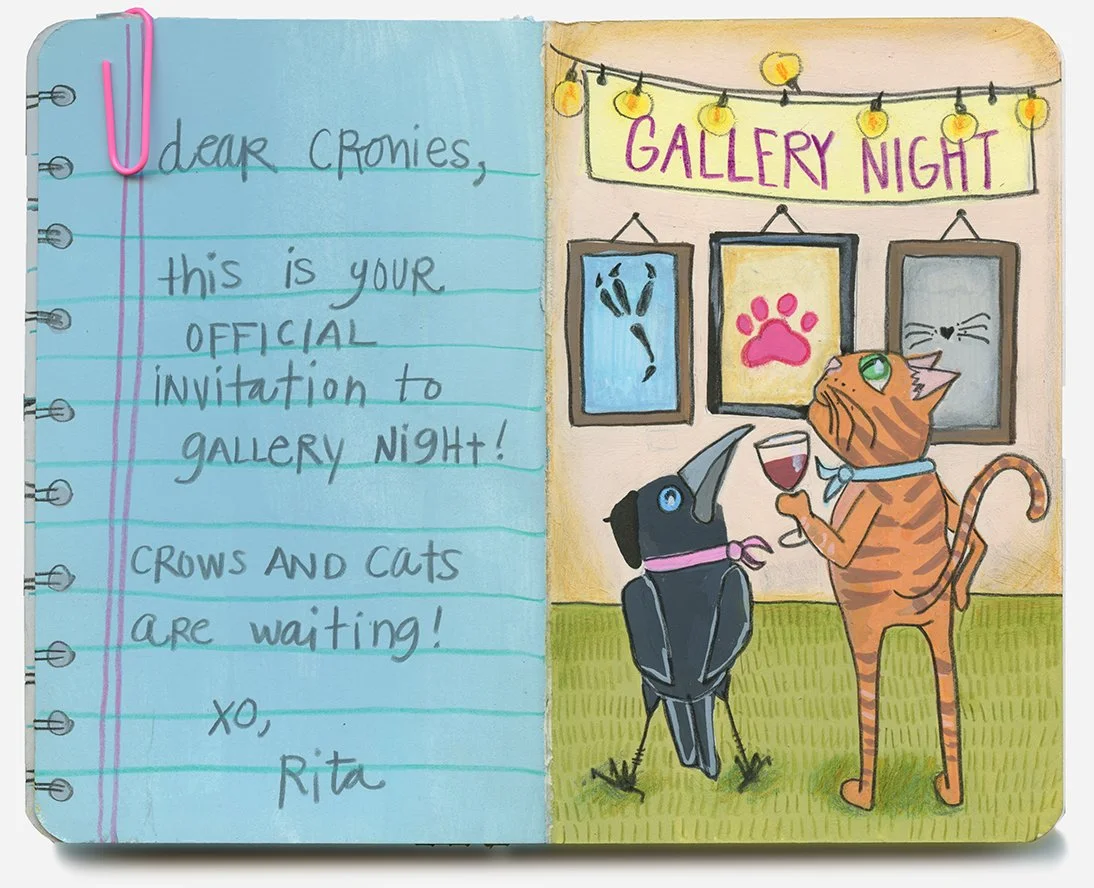 dear Cronies,
this is your
OFFICIAL
invitation to
gallery Night!
Crows and Cats
are waiting!
xo,
Rita
GALLERY NIGHT